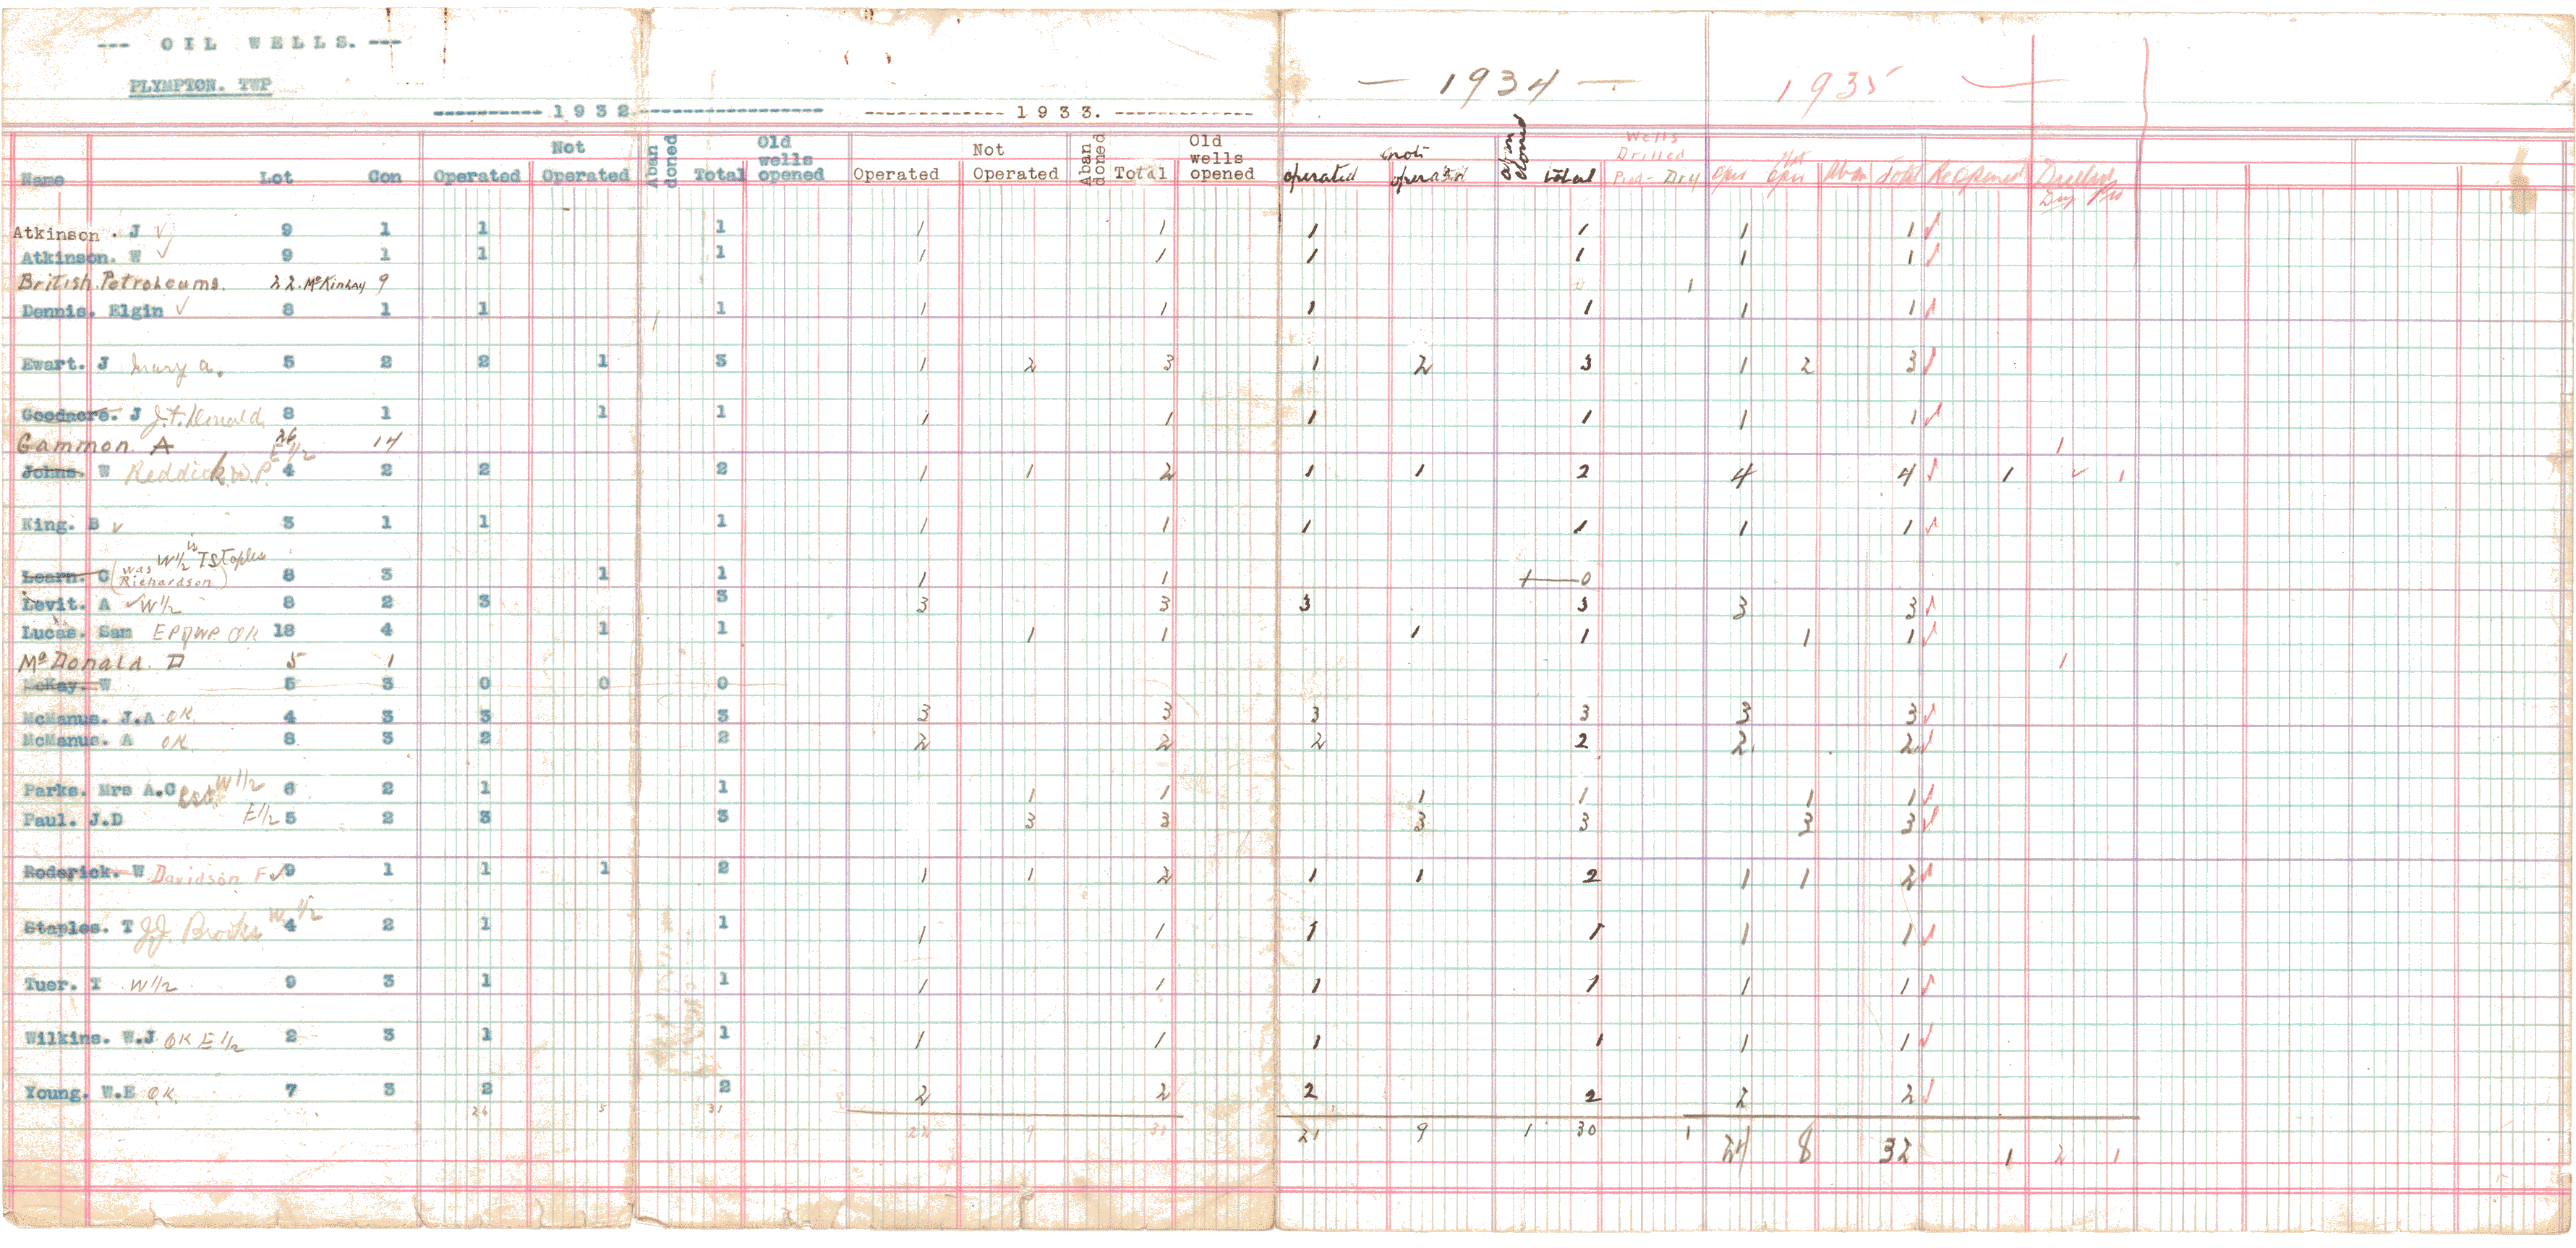 --- OIL WELLS. ---
PLYMPTON. TWP
— 1934 — 1935 —
---------- 1932 ----------------- ------------- 1933. -------------
Name Lot Con Operated Not Operated Aban doned Total Old wells opened Operated Not Operated Aban doned Total Old wells opened operated not operated aban doned total Wells Drilled Prod- Dry Oper Not Oper Aban Total Reopened Drilled Dry Pro
Atkinson. J ✓ 9 1 1 1 1 1 1 1 1 1 ✓
Atkinson. W ✓ 9 1 1 1 1 1 1 1 1 1 ✓
British Petroleums. 22. McKinlay 9 0 1
Dennis. Elgin ✓ 8 1 1 1 1 1 1 1 1 1 ✓
Ewart. J Mary A. 5 2 2 1 3 1 2 3 1 2 3 1 2 3 ✓
Goodacre. J J.F. Donald 8 1 1 1 1 1 1 1 1 1 ✓
Gammon. A 26 E 1/2 14 1
Johns. W Reddick W.P. 4 2 2 2 1 1 2 1 1 2 4 4 ✓ 1 ✓ 1
King. B ✓ 3 1 1 1 1 1 1 1 1 1 ✓
Learn. C (was Richardson) W 1/2 is T Staples 8 3 1 1 1 1 0
Levit. A ✓ W 1/2 8 2 3 3 3 3 3 3 3 3 ✓
Lucas. Sam E P of W P. OK 18 4 1 1 1 1 1 1 1 1 ✓
McDonald. D 5 1 1
McKay. W 5 3 0 0 0
McManus. J.A OK. 4 3 3 3 3 3 3 3 3 3 ✓
McManus. A OK. 8 3 2 2 2 2 2 2 2 2 ✓
Parks. Mrs A.C Est. W 1/2 6 2 1 1 1 1 1 1 1 1 ✓
Paul. J.D E 1/2 5 2 3 3 3 3 3 3 3 3 ✓
Roderick. W Davidson F ✓ 9 1 1 1 2 1 1 2 1 1 2 1 1 2 ✓
Staples. T J.J. Brooks W 1/2 4 2 1 1 1 1 1 1 1 1 ✓
Tuer. T W 1/2 9 3 1 1 1 1 1 1 1 1 ✓
Wilkins. W.J OK E 1/2 2 3 1 1 1 1 1 1 1 1 ✓
Young. W.E O.K. 7 3 2 2 2 2 2 2 2 2 ✓
26 5 31 22 9 31 21 9 1 30 1 24 8 32 1 2 1